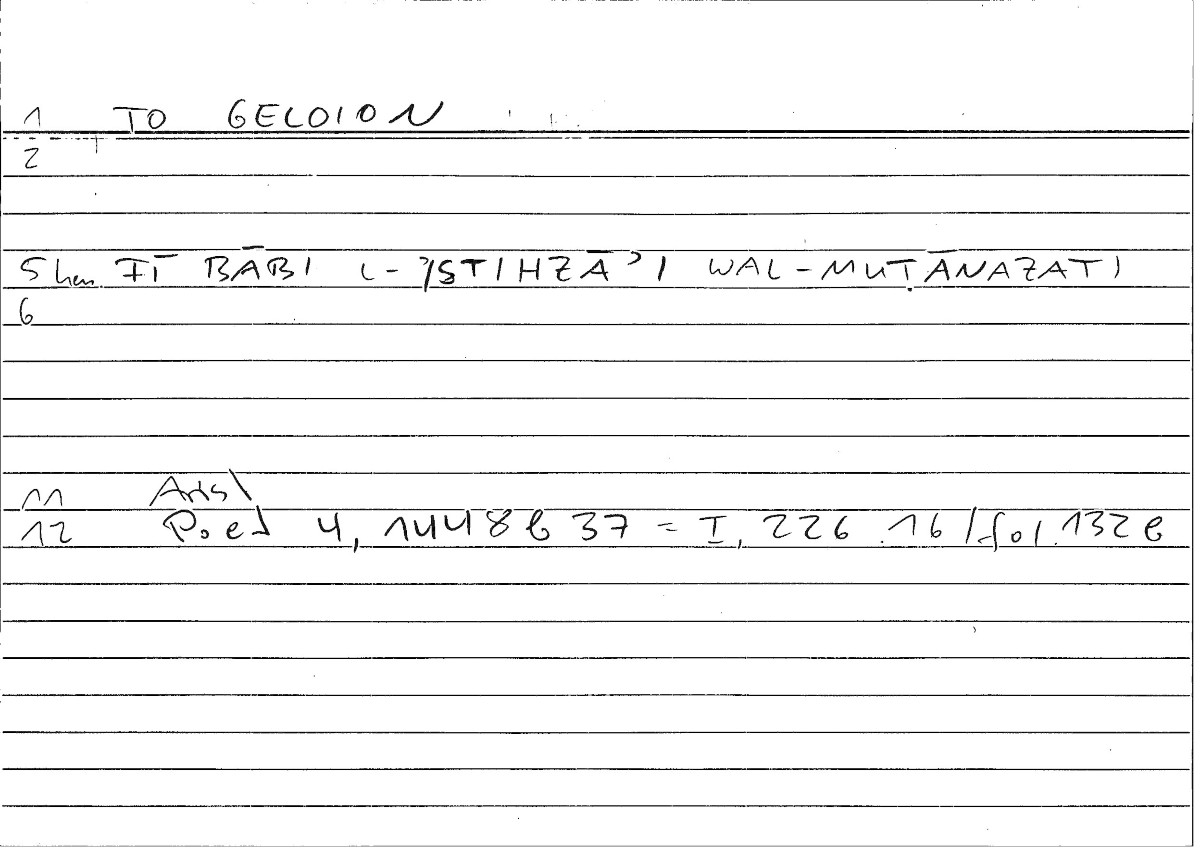 1 TO GELOION
2
5 hen FĪ BĀBI L-ʾISTIHZĀʾI WAL-MUṬĀNAZATI
6
11 Arist
12 Poet 4, 1448b 37 = I, 226.16/fol.132b